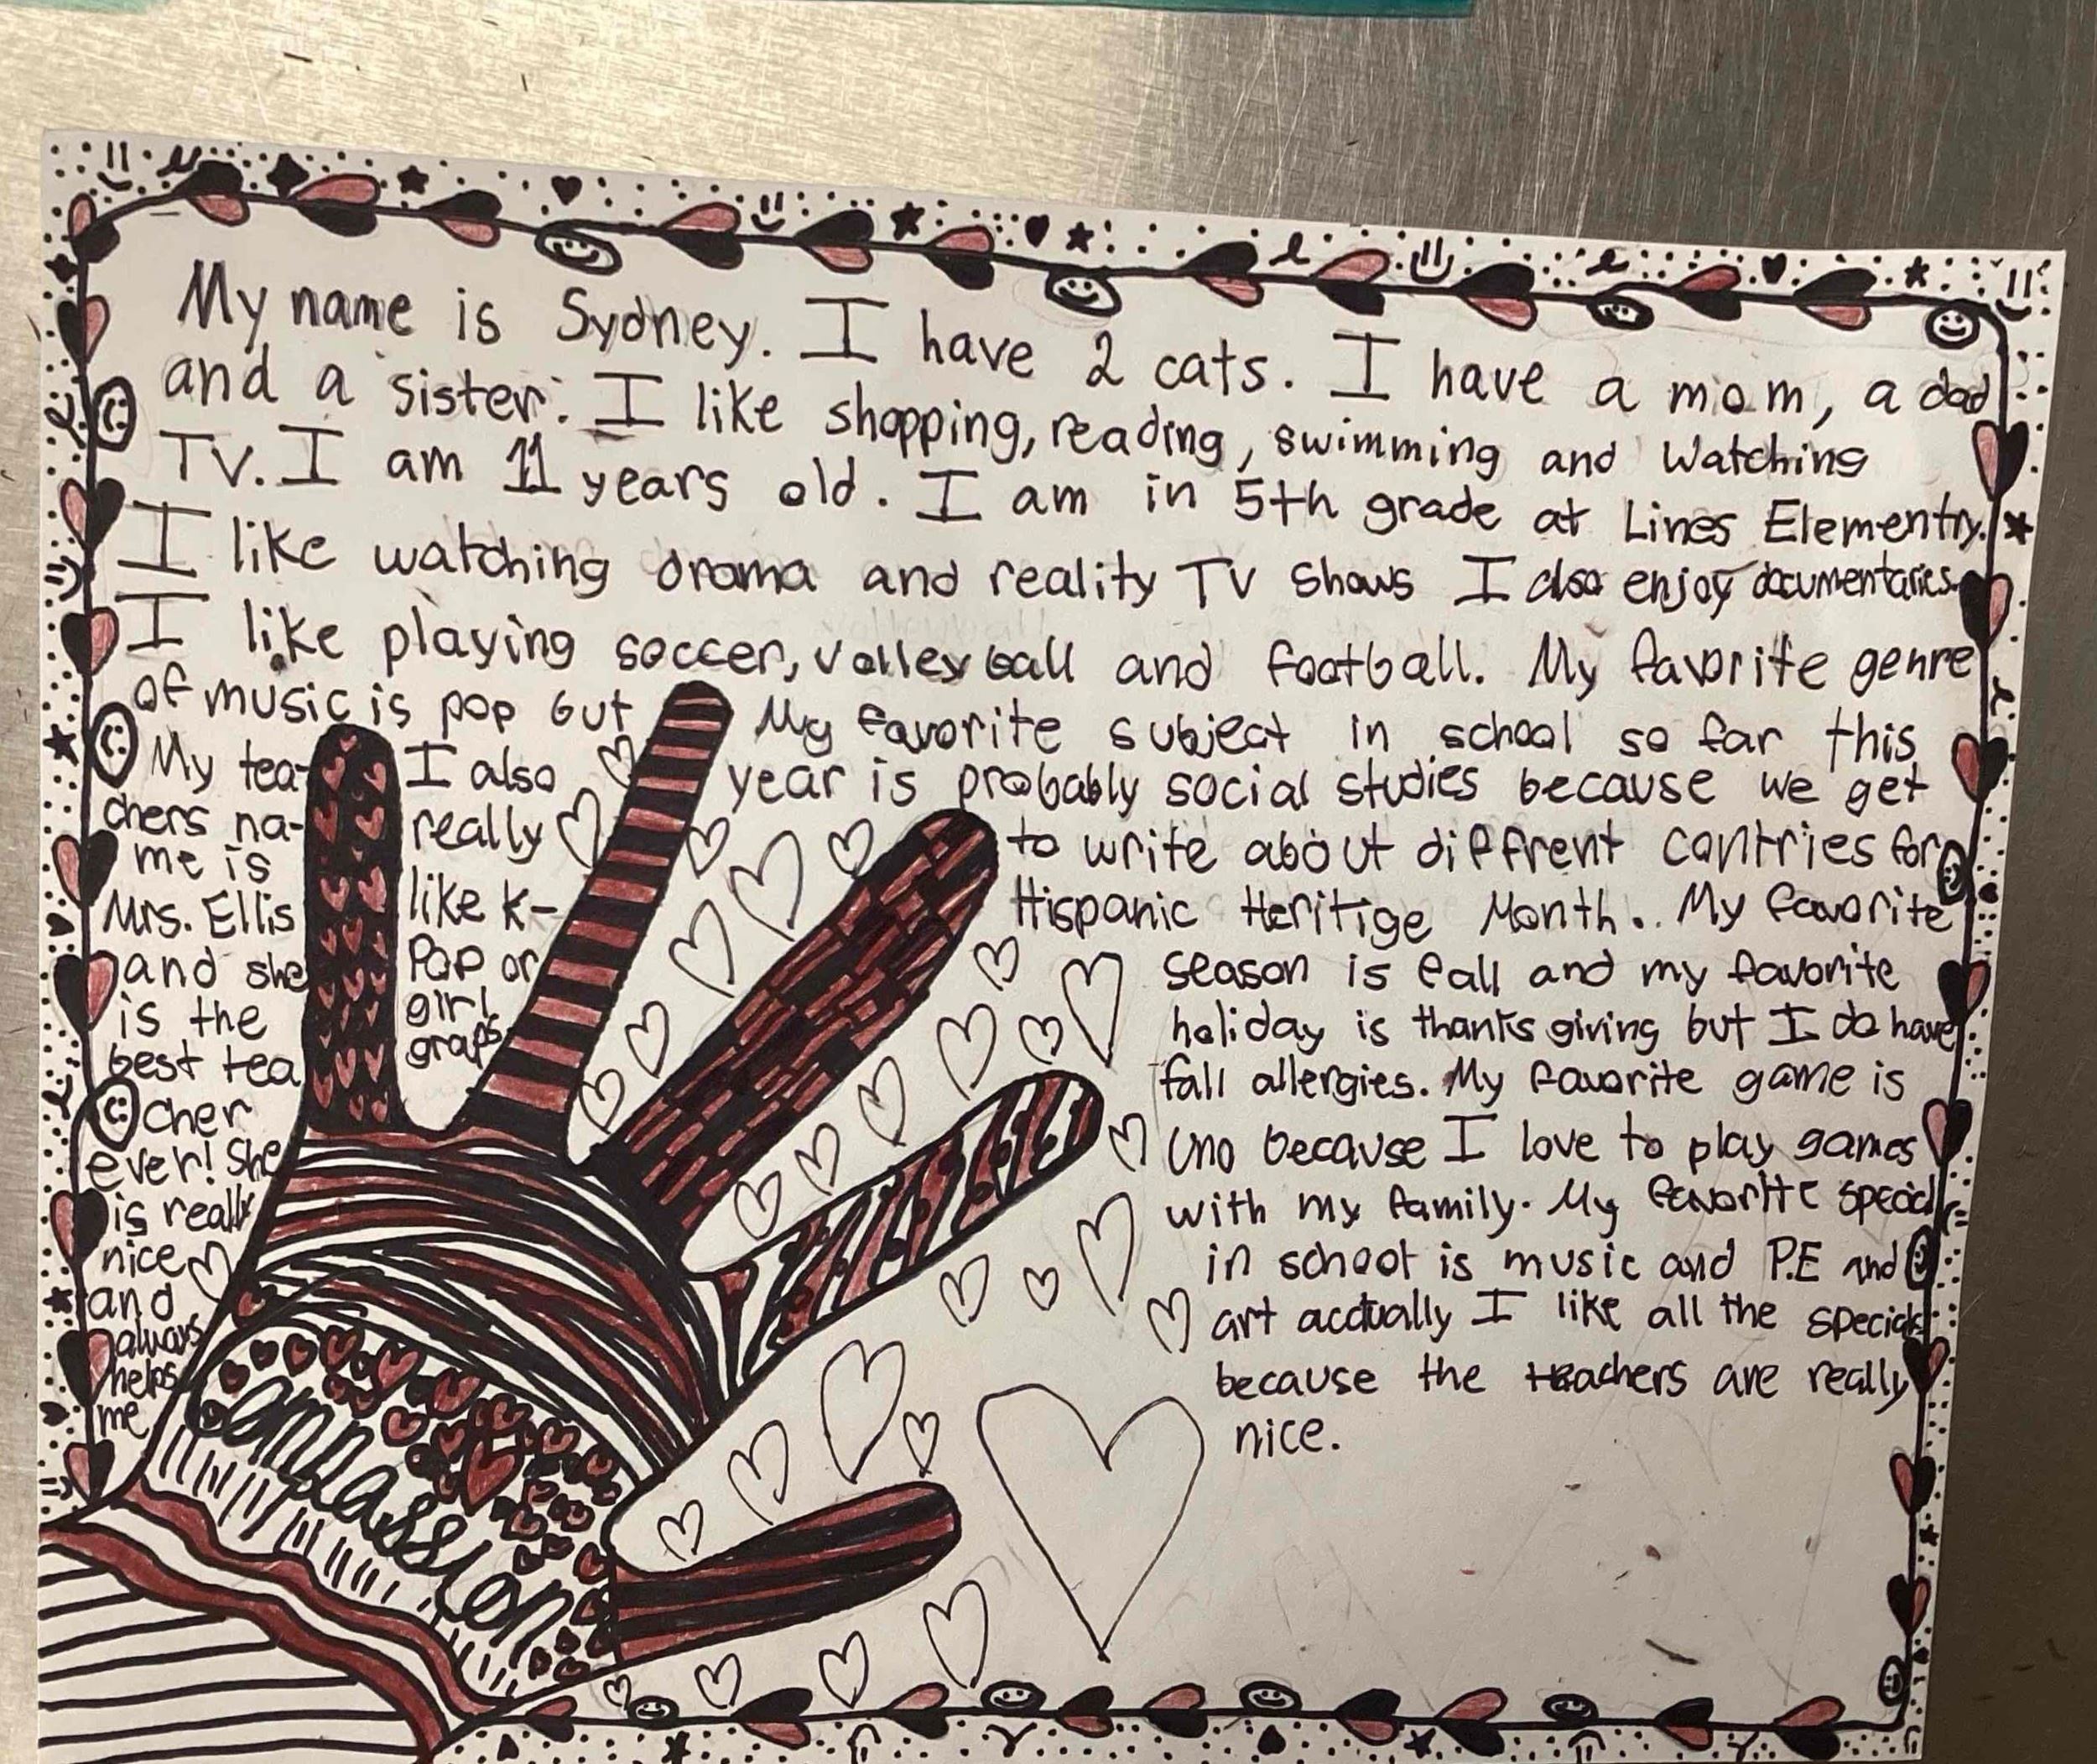 My name is Sydney. I have 2 cats. I have a mom, a dad
and a sister. I like shopping, reading, swimming and watching
TV. I am 11 years old. I am in 5th grade at Lines Elementry.
I like watching drama and reality TV shows I also enjoy documentaries.
I like playing soccer, volleyball and football. My favorite genre
of music is pop but
I also
really
like K-
Pop or
girl
graps
My favorite subject in school so far this
year is probably social studies because we get
to write about diffrent contries for
Hispanic Heritige Month. My favorite
season is fall and my favorite
holiday is thanksgiving but I do have
fall allergies. My favorite game is
Uno because I love to play games
with my family. My favorite special
in school is music and P.E and
art acctually I like all the specials
because the teachers are really
nice.
My tea-
chers na-
me is
Mrs. Ellis
and she
is the
best tea
cher
ever! She
is really
nice
and
always
helps
me
Compassion